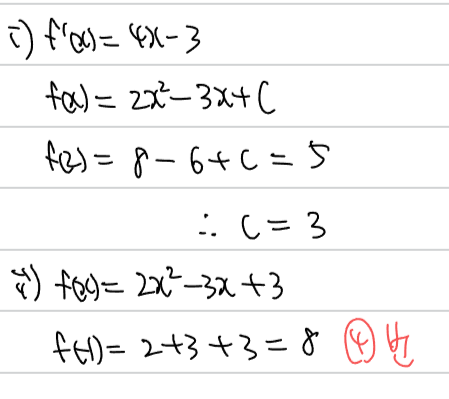 i) f'(x) = 4x - 3
f(x) = 2x² - 3x + C
f(2) = 8 - 6 + C = 5
∴ C = 3
ii) f(x) = 2x² - 3x + 3
f(-1) = 2 + 3 + 3 = 8 ④번